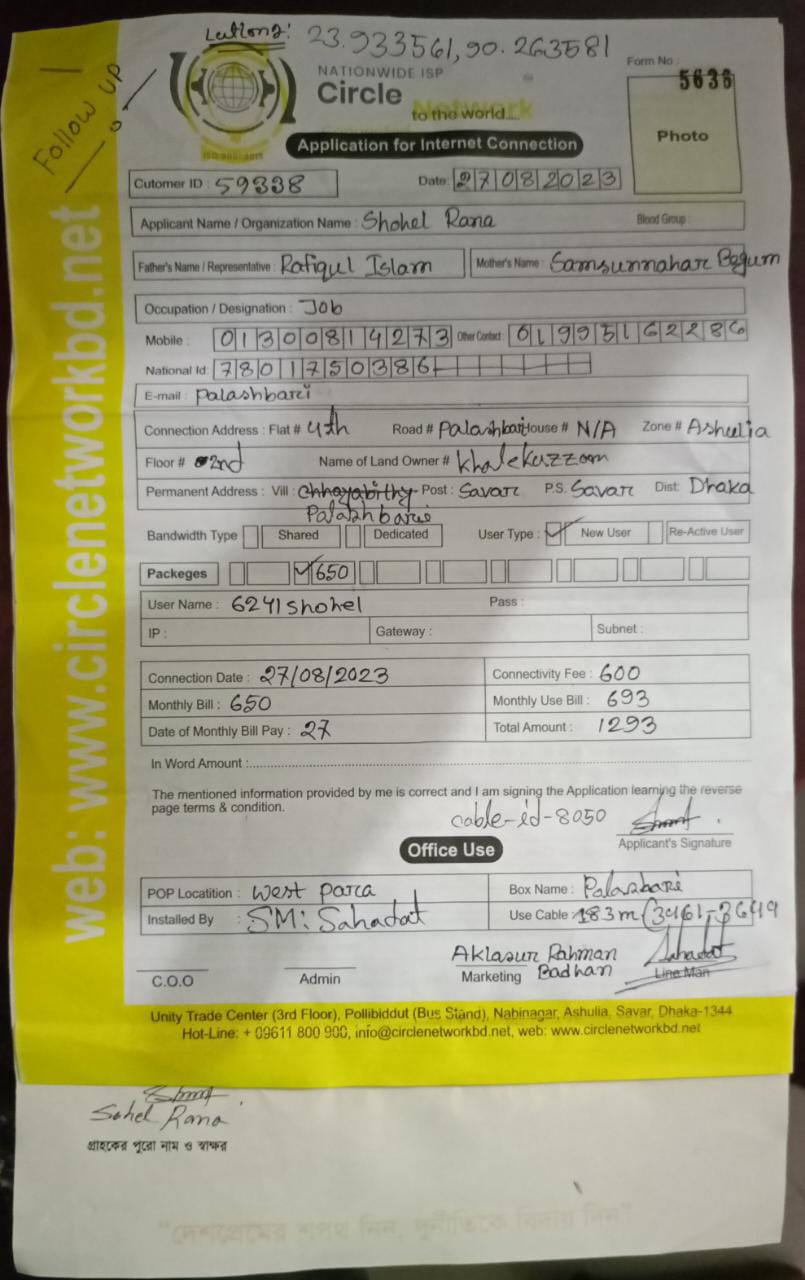 Latlong: 23.933561, 90.263581
FOLLOW UP
NATIONWIDE ISP
Circle Network
to the world...
ISO 9001:2015
Form No :
5636
Photo
Application for Internet Connection
Cutomer ID : 59338 Date: 27082023
Applicant Name / Organization Name : Shohel Rana Blood Group :
Father's Name / Representative : Rafiqul Islam Mother's Name : Samsunnahar Begum
Occupation / Designation : Job
Mobile : 01300814273 Other Contact 01995162286
National Id: 7801750386
E-mail : Palashbari
Connection Address : Flat # 4th Road # Palashbari House # N/A Zone # Ashulia
Floor # 2nd Name of Land Owner # Khalekuzzom
Permanent Address : Vill : Chhayabithy Post : Savar P.S. Savar Dist: Dhaka
Palashbarie
Bandwidth Type Shared Dedicated User Type : New User Re-Active User
Packeges 650
User Name : 6241shohel Pass :
IP : Gateway : Subnet :
Connection Date : 27/08/2023 Connectivity Fee : 600
Monthly Bill : 650 Monthly Use Bill : 693
Date of Monthly Bill Pay : 27 Total Amount : 1293
In Word Amount :
The mentioned information provided by me is correct and I am signing the Application learning the reverse
page terms & condition.
cable-id-8050
Applicant's Signature
Office Use
POP Locatition : West Para Box Name : Palasbari
Installed By : SM: Sahadat Use Cable : 183m (3461-3649
Aklasur Rahman Sahadat
C.O.O Admin Marketing Badhan Line Man
Unity Trade Center (3rd Floor), Pollibiddut (Bus Stand), Nabinagar, Ashulia, Savar, Dhaka-1344
Hot-Line: + 09611 800 900, info@circlenetworkbd.net, web: www.circlenetworkbd.net
web: www.circlenetworkbd.net
Sohel Rana
গ্রাহকের পুরো নাম ও স্বাক্ষর
"দেশপ্রেমের শপথ নিন, দুর্নীতিকে বিদায় দিন"